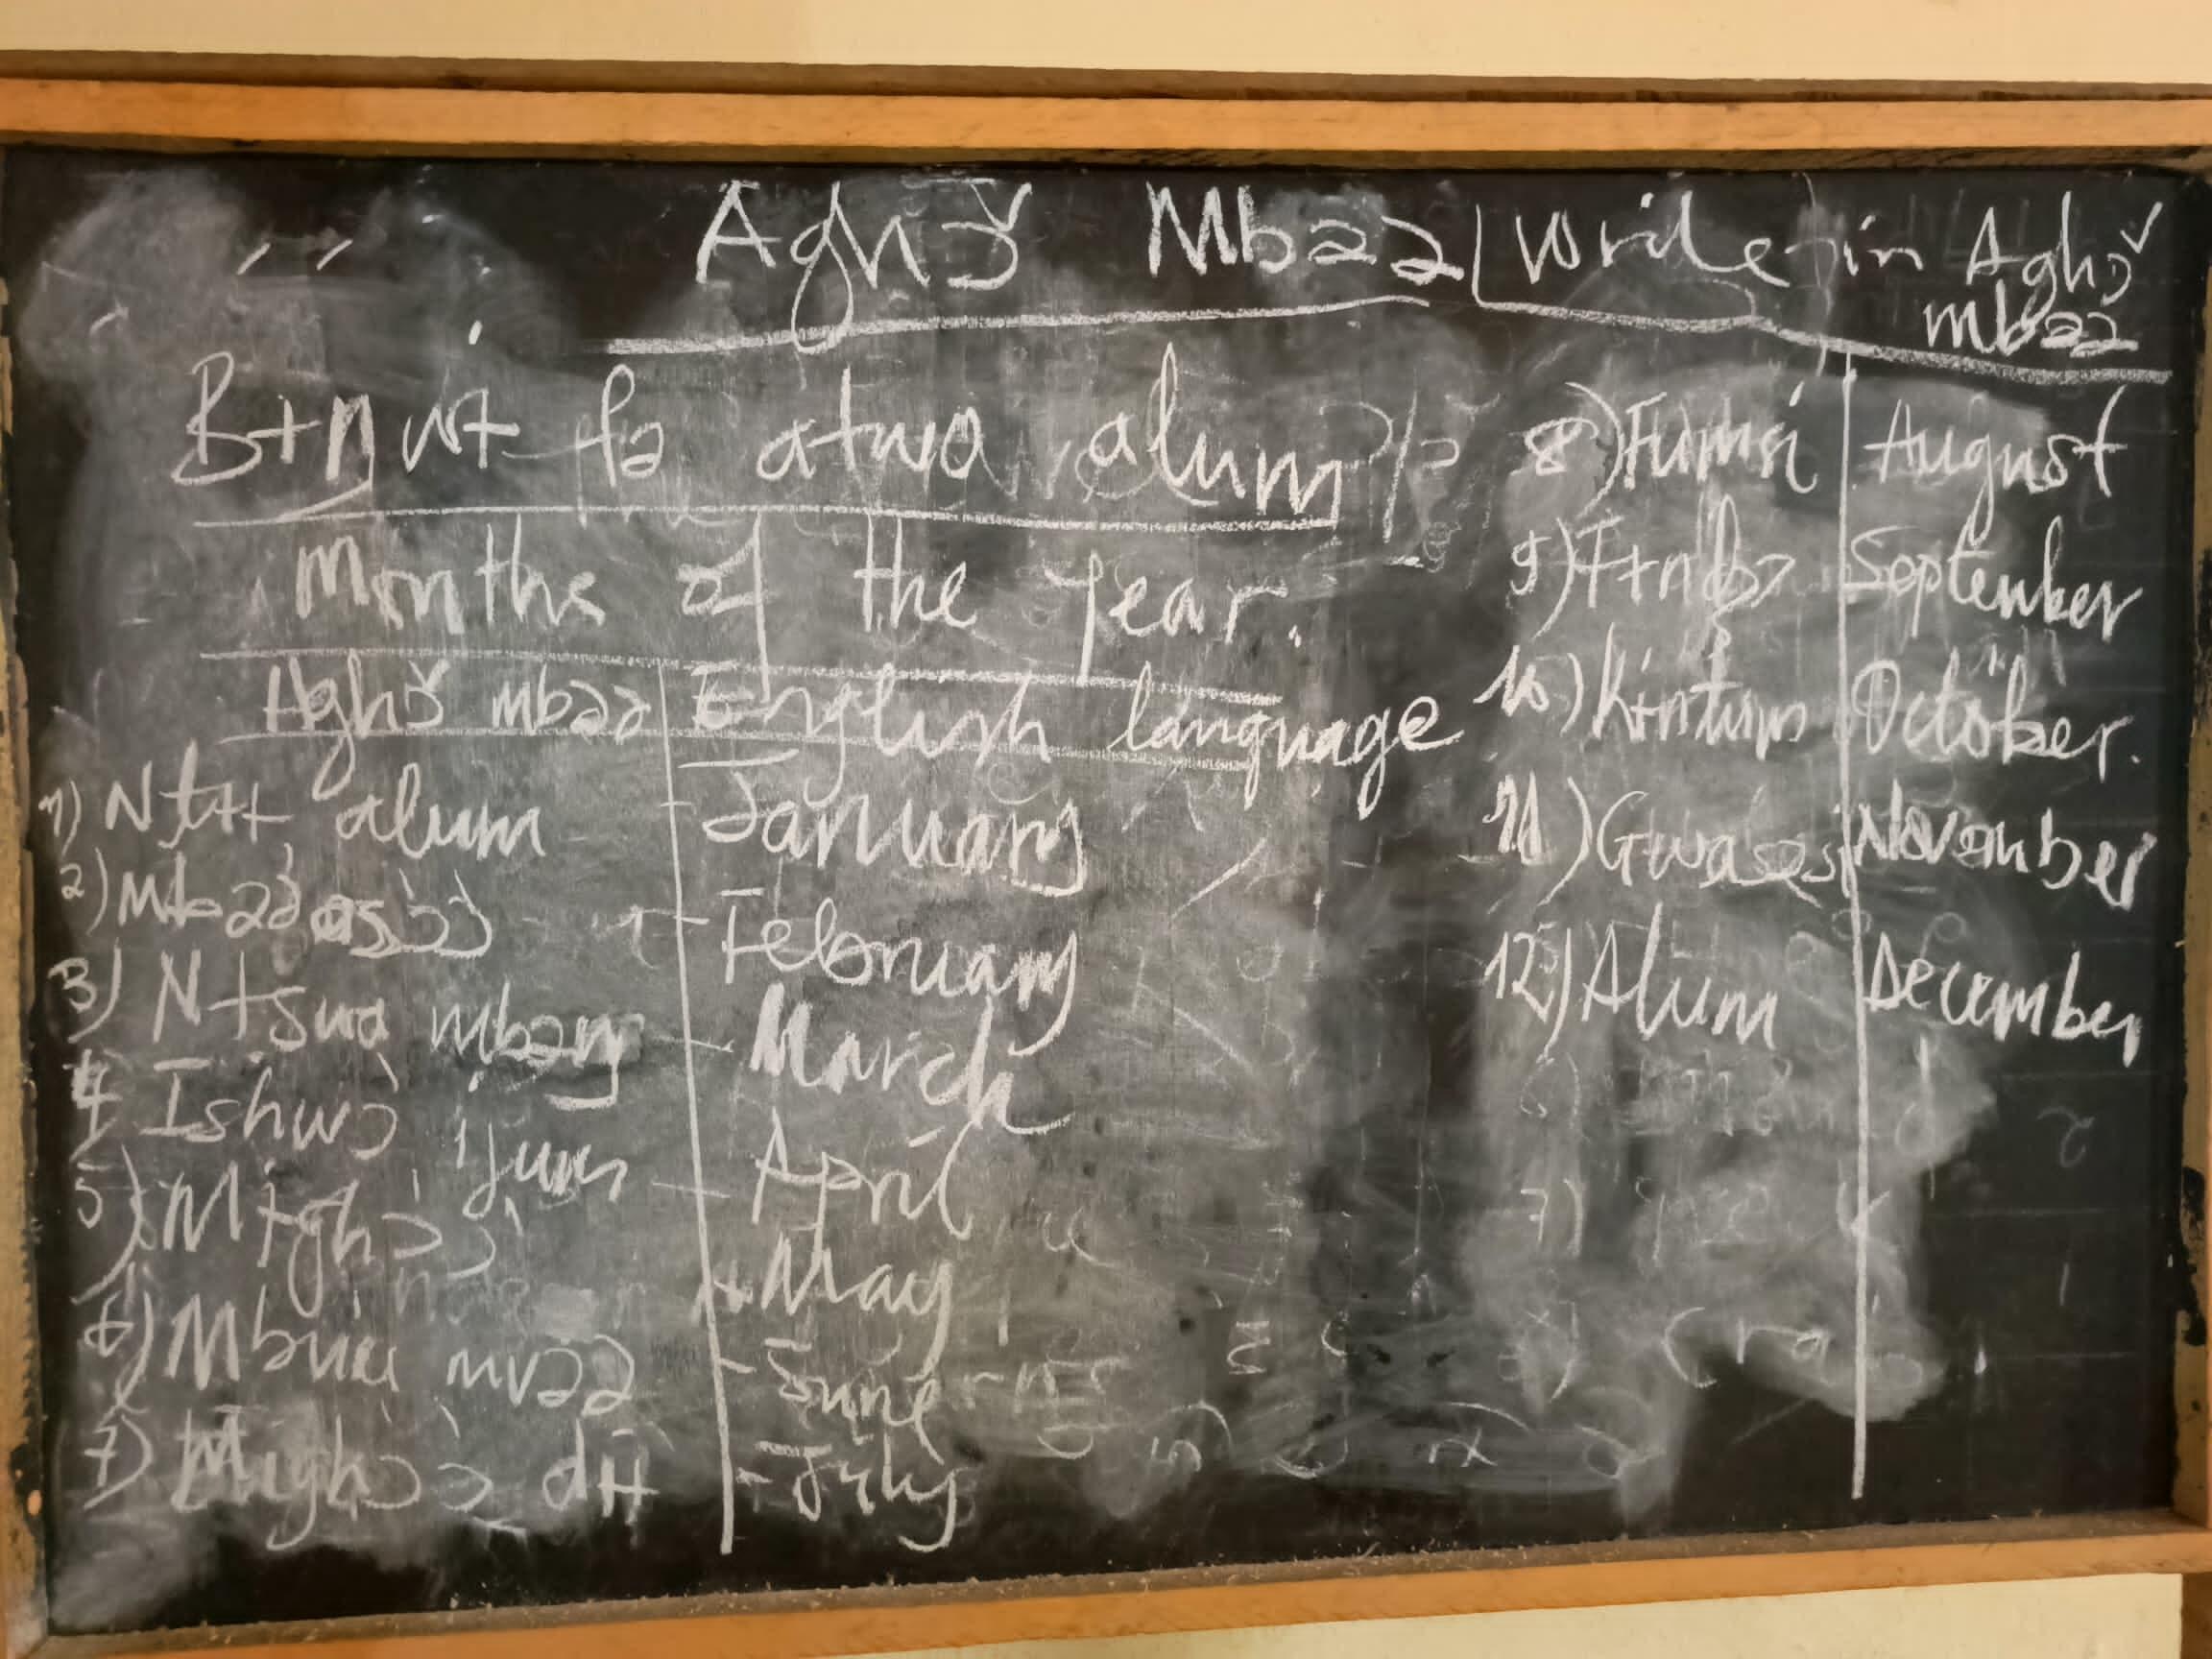 Aghɔ̌ Mbəə
write in Aghɔ̌
mbəə
Bɨŋwɨ fə atwa alum
Months of the year.
Aghɔ̌ mbəə English language
1) Ntɨɨ alum - January
2) Mbəə̀ asɔ̀ɔ̀ - February
3) Nɨswa mbəŋ - March
4 Ishwɔ̀ ijum - April
5) Mɨghɔɔ̀ - May
6) Mbwii mvəə - June
7) Mighɔɔ̀ dɨɨ - July
8) Fumsi August
9) Fɨnfɔ September
10) Kɨntum October.
11) Gwases November
12) Alum December